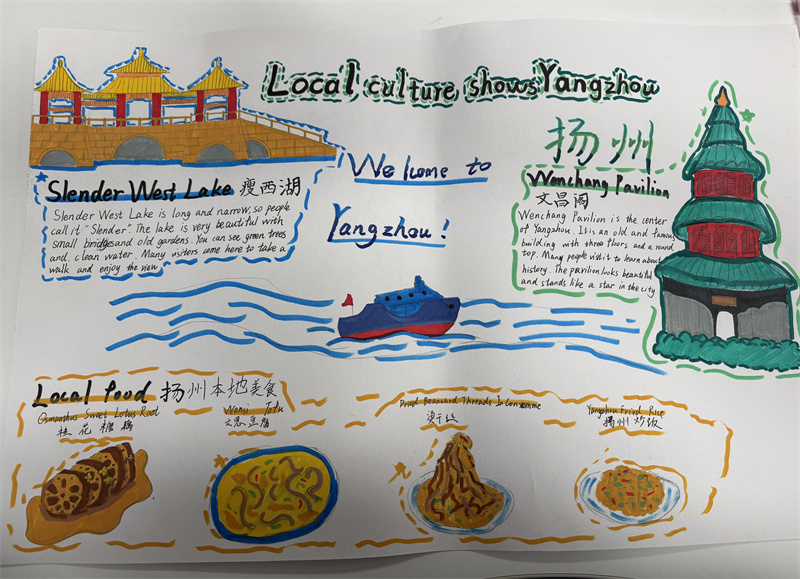 Local culture shows Yangzhou
扬州
Welcome to
Yangzhou!
Slender West Lake 瘦西湖
Slender West Lake is long and narrow, so people
call it "Slender". The lake is very beautiful with
small bridges and old gardens. You can see green trees
and clean water. Many visitors come here to take a
walk and enjoy the view
Wenchang Pavilion
文昌阁
Wenchang Pavilion is the center
of Yangzhou. It is an old and famous
building with three floors and a round
top. Many people visit it to learn about
history. The pavilion looks beautiful
and stands like a star in the city
Local food 扬州本地美食
Osmanthus Sweet Lotus Root
桂花糖藕
Wensi Tofu
文思豆腐
Dried Beancurd Threads In Consomme
丝
Yangzhou Fried Rice
扬州炒饭